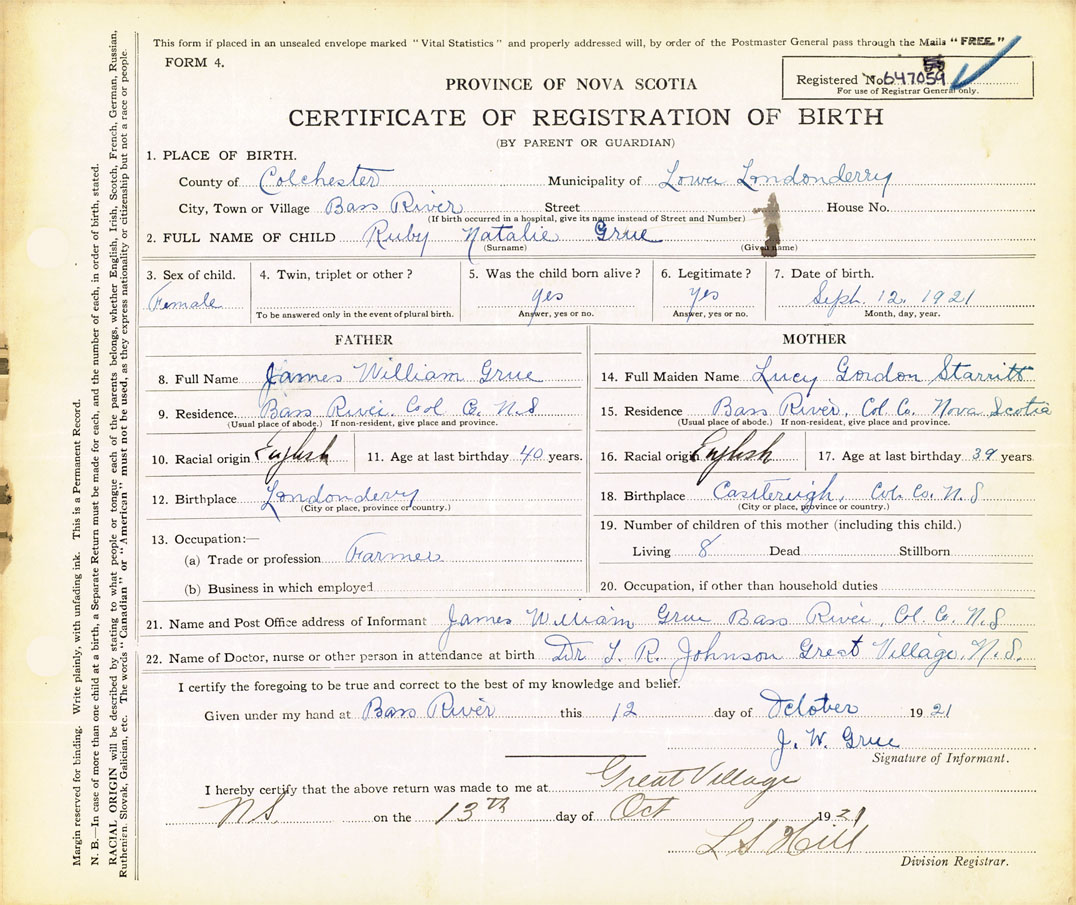 This form if placed in an unsealed envelope marked "Vital Statistics" and properly addressed will, by order of the Postmaster General pass through the Mails "FREE."
FORM 4.
Registered No 647059
For use of Registrar General only.
PROVINCE OF NOVA SCOTIA
CERTIFICATE OF REGISTRATION OF BIRTH
(BY PARENT OR GUARDIAN)
1. PLACE OF BIRTH.
County of Colchester Municipality of Lower Londonderry
City, Town or Village Bass River Street House No.
(If birth occurred in a hospital, give its name instead of Street and Number)
2. FULL NAME OF CHILD Ruby Natalie Grue
(Surname) (Given name)
3. Sex of child. 4. Twin, triplet or other? 5. Was the child born alive? 6. Legitimate? 7. Date of birth.
Female yes yes Sept. 12. 1921
To be answered only in the event of plural birth. Answer, yes or no. Answer, yes or no. Month, day, year.
FATHER
8. Full Name James William Grue
9. Residence. Bass River. Col Co. N.S
(Usual place of abode.) If non-resident, give place and province.
10. Racial origin English 11. Age at last birthday 40 years.
12. Birthplace Londonderry
(City or place, province or country.)
13. Occupation:—
(a) Trade or profession Farmer
(b) Business in which employed
MOTHER
14. Full Maiden Name Lucy Gordon Starritt
15. Residence Bass River, Col. Co. Nova Scotia
(Usual place of abode.) If non-resident, give place and province.
16. Racial origin English 17. Age at last birthday 39 years.
18. Birthplace Col. Co. N.S
(City or place, province or country.)
19. Number of children of this mother (including this child.)
Living 8 Dead Stillborn
20. Occupation, if other than household duties
21. Name and Post Office address of Informant James William Grue Bass River, Col. Co. N.S
22. Name of Doctor, nurse or other person in attendance at birth Dr T. R. Johnson Great Village, N.S.
I certify the foregoing to be true and correct to the best of my knowledge and belief.
Given under my hand at Bass River this 12 day of October 1921
J. W. Grue
Signature of Informant.
I hereby certify that the above return was made to me at Great Village
NS on the 13th day of Oct 1921
L S Hill
Division Registrar.
Margin reserved for binding. Write plainly, with unfading ink. This is a Permanent Record.
N. B.—In case of more than one child at a birth, a Separate Return must be made for each, and the number of each, in order of birth, stated.
RACIAL ORIGIN will be described by stating to what people or tongue each of the parents belongs, whether English, Irish, Scotch, French, German, Russian,
Ruthenian, Slovak, Galician, etc. The words "Canadian" or "American" must not be used, as they express nationality or citizenship but not a race or people.